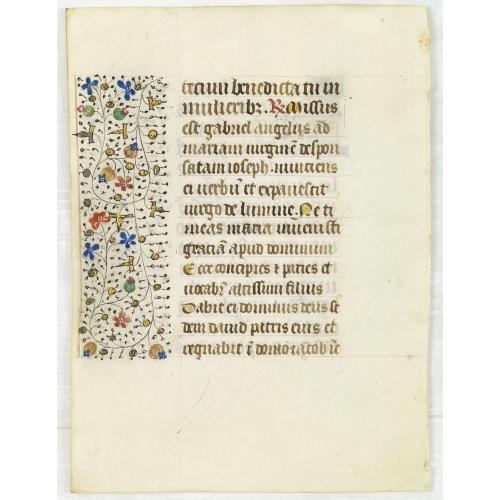 tecum benedicta tu in
mulieribꝫ. R̃. Missus
est gabriel angelus ad
mariam virginē despon
satam ioseph. nuncians
ei verbū et expauescit
virgo de lumine. Ne ti
meas maria inuenisti
graciā apud dominum
Ecce concipies & paries et
uocabr̄ altissimi filius
Dabit ei dominus deus se
dem dauid patris eius et
regnabit ī domo iacob īe